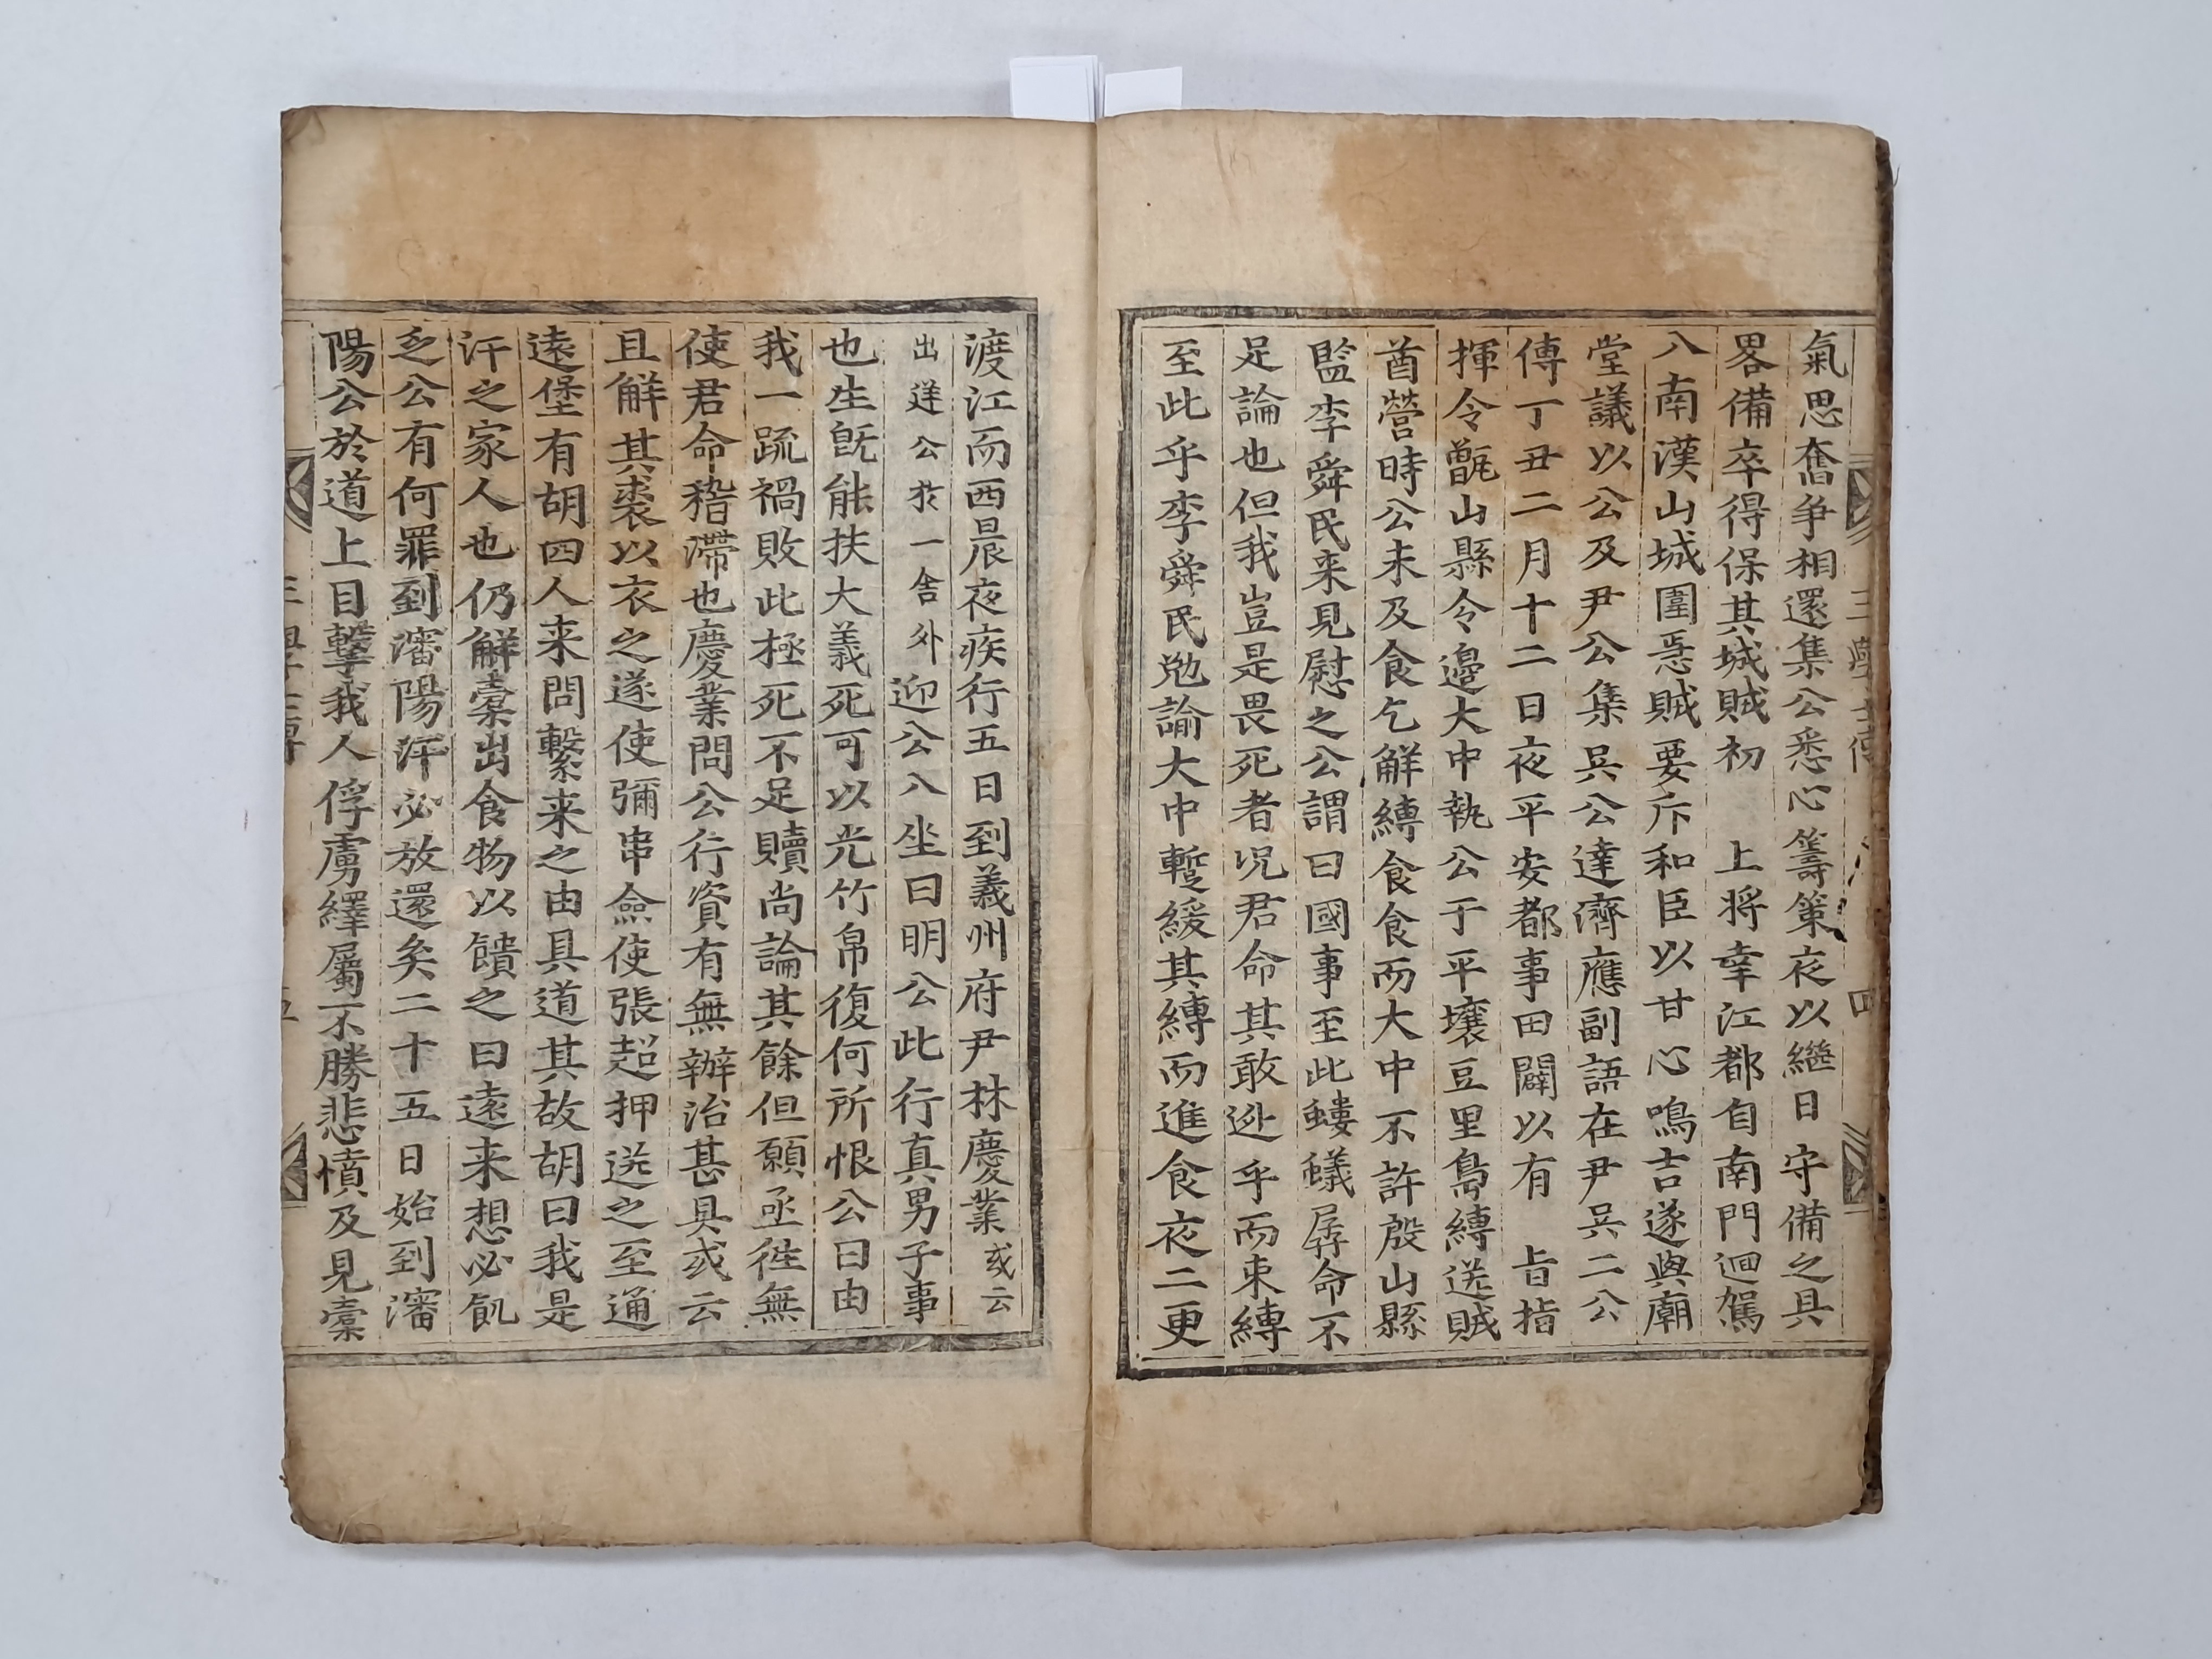 氣思奮爭相還集公悉心籌策夜以繼日守備之具
畧備卒得保其城賊初 上將幸江都自南門迴駕
入南漢山城圍急賊要斥和臣以甘心鳴吉遂與廟
堂議以公及尹公集吳公達濟應副語在尹吳二公
傳丁丑二月十二日夜平安都事田闢以有 旨指
揮令甑山縣令邉大中執公于平壤豆里島縛送賊
酋營時公未及食乞解縛食食而大中不許殷山縣
監李舜民来見慰之公謂曰國事至此螻蟻孱命不
足論也但我豈是畏死者况君命其敢逃乎而束縛
至此乎李舜民勉諭大中蹔緩其縛而進食夜二更
渡江而西晨夜疾行五日到義州府尹林慶業或云
出送公於一舍外迎公入坐曰明公此行真男子事
也生旣能扶大義死可以光竹帛復何所恨公曰由
我一疏禍敗此極死不足贖尚論其餘但願亟徃無
使君命稽滯也慶業問公行資有無辦治甚具或云
且解其裘以衣之遂使彌串僉使張超押送之至通
遠堡有胡四人来問繫来之由具道其故胡曰我是
汗之家人也仍解橐出食物以饋之曰遠来想必飢
乏公有何罪到瀋陽汗必放還矣二十五日始到瀋
陽公於道上目擊我人俘虜繹屬不勝悲憤及見橐
三學士傳
四
五